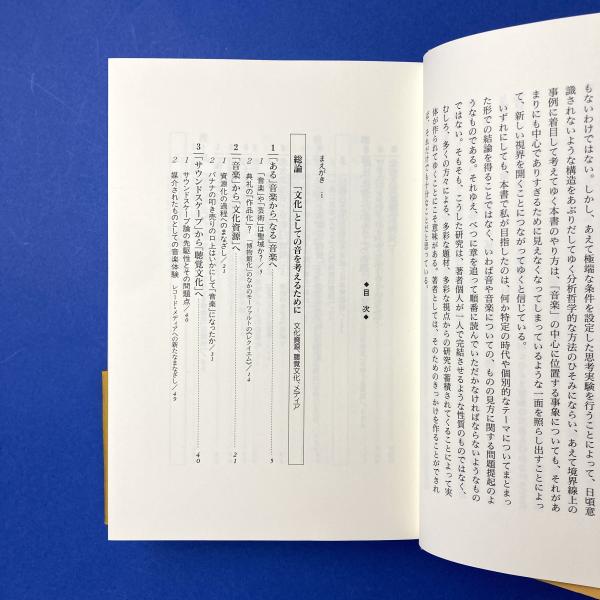 もないわけではない。しかし、あえて極端な条件を設定した思考実験を行うことによって、日頃意
識されないような構造をあぶりだしてゆく分析哲学的な方法のひそみにならい、あえて境界線上の
事例に着目して考えてゆく本書のやり方は、「音楽」の中心に位置する事象についても、それがあ
まりにも中心でありすぎるために見えなくなってしまっているような一面を照らし出すことによっ
て、新しい視界を開くことにつながってゆくと信じている。
いずれにしても、本書で私が目指したのは、何か特定の時代や個別的なテーマについてまとまっ
た形での結論を得ることではなく、いわば音や音楽についての、ものの見方に関する問題提起のよ
うなものである。それゆえ、べつに章を追って順番に読んでいただかなければならないようなもの
ではない。そもそも、こうした研究は、著者個人が一人で完結させるような性質のものではなく、
むしろ、多くの方々による、多彩な題材、多彩な視点からの研究が蓄積されてくることによって実
体が作られてゆくことにこそ意味がある。著者としては、そのためのきっかけを作ることができれ
◆目 次◆
まえがき i
総論 「文化」としての音を考えるために 文化資源、聴覚文化、メディア
1 「ある」音楽から「なる」音楽へ 5
1 「音楽」や「芸術」は聖域か？／5
2 典礼の「作品化」？ 「博物館化」のなかのモーツァルトの《レクイエム》／14
2 「音楽」から「文化資源」へ 21
1 資源化の過程へのまなざし／21
2 バナナの叩き売りの口上はいかにして「音楽」になったか／31
3 「サウンドスケープ」から「聴覚文化」へ 40
1 サウンドスケープ論の先駆性とその問題点／40
2 媒介されたものとしての音楽体験 レコード・メディアへの新たなまなざし／49